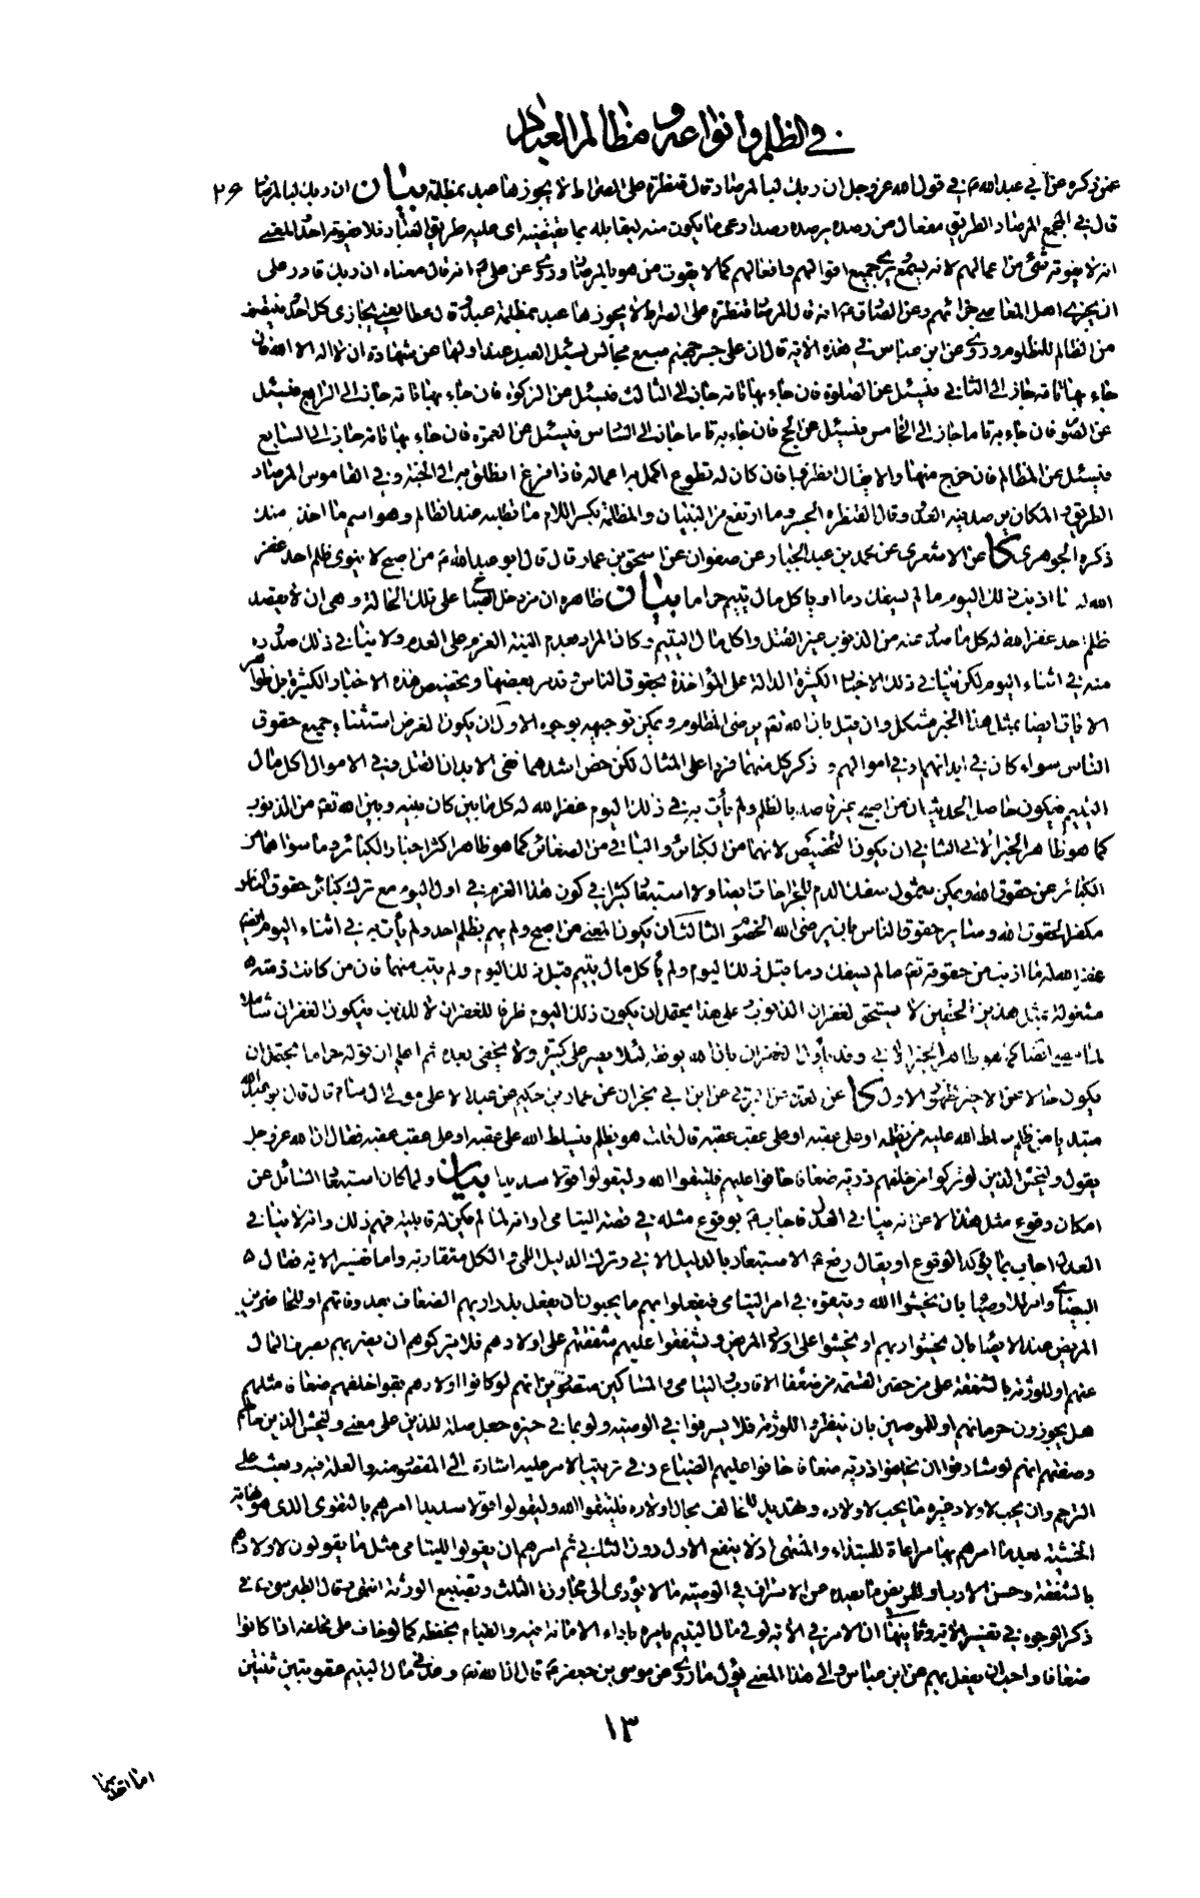 في الظلم وانواعه ومظالم العباد
۲۶
عمن ذكره عن ابي عبد الله ع في قول الله عز وجل ان ربك لبالمرصاد قال قنطرة على الصراط لا يجوزها عبد بمظلمة بيان ان ربك لبالمرصاد
قال في المجمع المرصاد الطريق مفعال من رصده يرصده رصدا رعى ما يكون منه ليقابله بما يقتضيه اى عليه طريق العباد فلا يفوته احد والمعنى
انه لا يفوته شئ من اعمالهم لانه يسمع ويرى جميع اقوالهم وافعالهم كما لا يفوت من هو بالمرصاد وروى عن على ع انه قال معناه ان ربك قادر على
ان يجزى اهل المعاصى جزائهم وعن الصادق ع انه قال المرصاد قنطرة على الصراط لا يجوزها عبد بمظلمة عبد وقال عطا يعنى يجازى كل احد وينتصف
من الظالم للمظلوم وروى عن ابن عباس في هذه الاية قال ان على جسر جهنم سبع محابس يسئل العبد عند اولها عن شهادة ان لا اله الا الله فان
جاء بها تامة جاز الى الثاني فيسئل عن الصلوة فان جاء بها تامة جاز الى الثالث فيسئل عن الزكوة فان جاء بها تامة جاز الى الرابع فيسئل
عن الصوم فان جاء به تاما جاز الى الخامس فيسئل عن الحج فان جاء به تاما جاز الى السادس فيسئل عن العمرة فان جاء بها تامة جاز الى السابع
فيسئل عن المظالم فان خرج منها والا يقال انظروا فان كان له تطوع اكمل به اعماله فاذا فرغ انطلق به الى الجنة وفي القاموس المرصاد
الطريق والمكان يرصد فيه العدو وقال القنطرة الجسر وما ارتفع من البنيان والمظلمة بكسر اللام ما تطلبه عند الظالم وهو اسم ما اخذ منك
ذكره الجوهرى كا عن الاشعرى عن محمد بن عبد الجبار عن صفوان عن اسحق بن عمار قال قال ابو عبد الله ع من اصبح لا ينوى ظلم احد غفر
الله له ما اذنب ذلك اليوم ما لم يسفك دما او ياكل مال يتيم حراما بيان ظاهره ان من دخل الصباح على تلك الحالة وهى ان لا يقصد
ظلم احد غفر الله له كل ما صدر عنه من الذنوب غير القتل واكل مال اليتيم وكان المراد بعدم النية العزم على العدم ولا ينافي ذلك صدوره
منه في اثناء اليوم لكن ينافي ذلك الاخبار الكثيرة الدالة على المؤاخذة بحقوق الناس وقد مر بعضها وتخصيص هذه الاخبار الكثيرة بل ظواهر
الايات ايضا بمثل هذا الخبر مشكل وان قيل بان الله تعالى يرضى المظلوم ويمكن توجيهه بوجوه الاول ان يكون الغرض استثناء جميع حقوق
الناس سواء كان في ابدانهم او في اموالهم وذكر كل منهما فردا على المثال لكن خص اشدهما ففى الابدان القتل وفى الاموال اكل مال
اليتيم فيكون حاصل الحديث ان من اصبح غير قاصد بالظلم ولم يأت به في ذلك اليوم غفر الله له كل ما بينه وبين الله تعالى من الذنوب
كما هو ظاهر الخبر الاتى الثاني ان يكون التخصيص لانهما من الكبائر والباقى من الصغائر كما هو ظاهر اكثر اخبار الكبائر وما سواهما من
الكبائر من حقوق الله ويمكن شمول سفك الدم للجراحات ايضا ولا استبعاد كثيرا في كون هذا العزم في اول اليوم مع ترك كبائر حقوق الناس
مكفرا لحقوق الله وسائر حقوق الناس بان يرضى الله الخصوم الثالث ان يكون المعنى من اصبح ولم يهم بظلم احد ولم يأت به في اثناء اليوم ايضا
غفر الله له ما اذنب من حقوقه تعالى ما لم يسفك دما قبل ذلك اليوم ولم يأكل مال يتيم قبل ذلك اليوم ولم يتب منهما فان من كانت ذمته
مشغولة بمثل هذين الحقين لا يستحق لغفران الذنوب على هذا يحتمل ان يكون ذلك اليوم ظرفا للغفران لا للذنب فيكون الغفران شاملا
لما مضى ايضا كما هو ظاهر الخبر الاتى وقد يأول الغفران بان الله يوفقه لئلا يصر على كبيرة ولا يخفى بعده ثم اعلم ان قوله حراما يحتمل ان
يكون حالا عن الاخير فقط او الاول كا عن العدة عن البرقى عن ابن ابى نجران عن عمار بن حكيم عن عبد الاعلى مولى ال سام قال قال ابو عبد الله
مبتديا من ظلم سلط الله عليه من يظلمه او على عقبه او على عقب عقبه قال قلت هو يظلم فيسلط الله على عقبه او على عقب عقبه فقال ان الله عز وجل
يقول وليخش الذين لو تركوا من خلفهم ذرية ضعافا خافوا عليهم فليتقوا الله وليقولوا قولا سديدا بيان ولما كان استبعاد السائل عن
امكان وقوع مثل هذا لا عن انه ينافي العدل فاجاب ع بوقوع مثله في قصة اليتامى او انه لما لم يكن له قابلية فهم ذلك وانه لا ينافي
العدل اجاب بما يؤكد الوقوع او يقال رفع ع الاستبعاد بالدليل الانى وترك الدليل اللمى والكل متقاربة واما تفسير الاية فقال
البيضاوى امر للاوصياء بان يخشوا الله ويتقوه في امر اليتامى فيفعلوا بهم ما يحبون ان يفعل بذراريهم الضعاف بعد وفاتهم او للحاضرين
المريض عند الايصاء بان يخشوا ربهم او يخشوا على اولاد المريض ويشفقوا عليهم شفقتهم على اولادهم فلا يتركوهم ان يضر بهم بصرف المال
عنهم او للورثة بالشفقة على من حضر القسمة من ضعفاء الاقارب واليتامى والمساكين متصورين انهم لو كانوا اولادهم بقوا خلفهم ضعافا مثلهم
هل يجوزون حرمانهم او للموصين بان ينظروا للورثة فلا يسرفوا في الوصية ولو بما في حيزه جعل صلة للذين على معنى وليخش الذين حالهم
وصفتهم انهم لو شارفوا ان يخلفوا ذرية ضعافا خافوا عليهم الضياع وفى ترتيب الامر عليه اشارة الى المقصود منه والعلة فيه وبعث على
الترحم وان يحب لاولاد غيره ما يحب لاولاده وتهديد للمخالف بحال اولاده فليتقوا الله وليقولوا قولا سديدا امرهم بالتقوى الذى هو نهاية
الخشية بعد ما امرهم بها مراعاة للمبتداء والمنتهى اذ لا ينفع الاول دون الثاني ثم امرهم ان يقولوا لليتامى مثل ما يقولون لاولادهم
بالشفقة وحسن الادب او للمريض ما يصده عن الاسراف في الوصية ما لا يؤدى الى مجاوزة الثلث وتضييع الورثة انتهى وقال الطبرسى ره في
ذكر الوجوه في تفسير الاية وثانيها ان الامر في الاية لولى مال اليتيم يامره باداء الامانة فيه والقيام بحفظه كما لو خاف على مخلفيه اذا كانوا
ضعافا واحب ان يفعل بهم عن ابن عباس والى هذا المعنى يؤل ما روى عن موسى بن جعفر ع قال ان الله تعالى وعد في مال اليتيم عقوبتين ثنتين
۱۳
اما احديهما